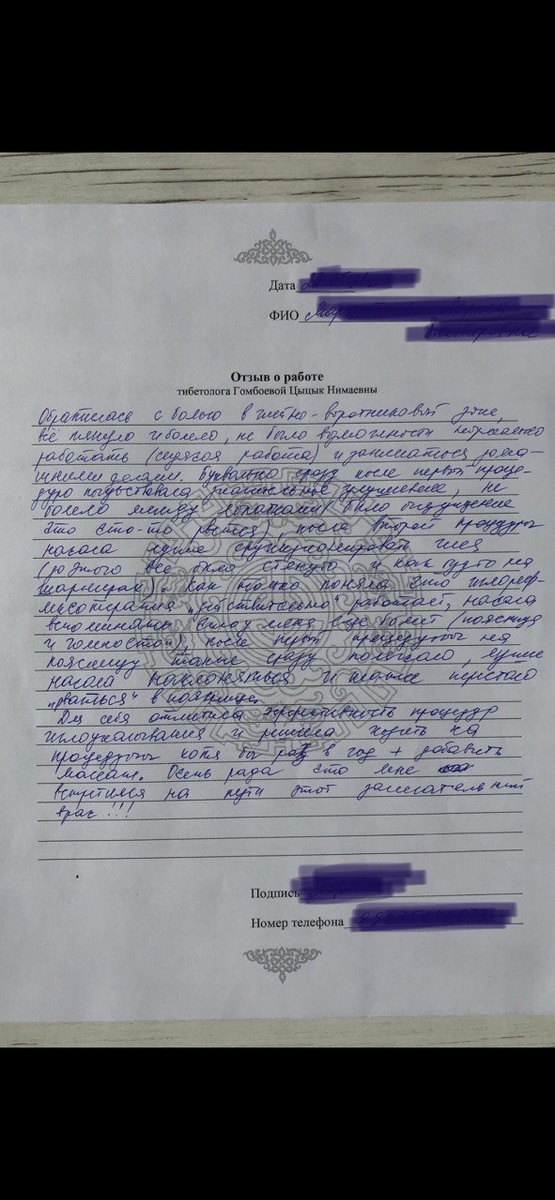 Дата
ФИО
Отзыв о работе
тибетолога Гомбоевой Цыцык Нимаевны
Обратилась с болью в шейно-воротниковой зоне,
всё тянуло и болело, не было возможности нормально
работать (сидячая работа) и заниматься дома-
шними делами. Буквально сразу после первой проце-
дуры почувствовала значительное улучшение, не
болело между лопатками (было ощущение
что что-то рвется), после второй процедуры
начала лучше функционировать шея
(до этого все было стянуто и как будто на
шарнирах). Как только поняла что иглореф-
лексотерапия "действительно" работает, начала
вспоминать какая меня еще болит (поясница
и голеностоп), после первой процедуры на
поясницу также сразу полегчало, лучше
начала наклоняться и также перестало
"рваться" в пояснице.
Для себя отметила эффективность процедур
иглоукалывания и решила ходить на
процедуры хотя бы раз в год + добавить
массаж. Очень рада что мне
встретился на пути этот замечательный
врач!!!
Подпись
Номер телефона